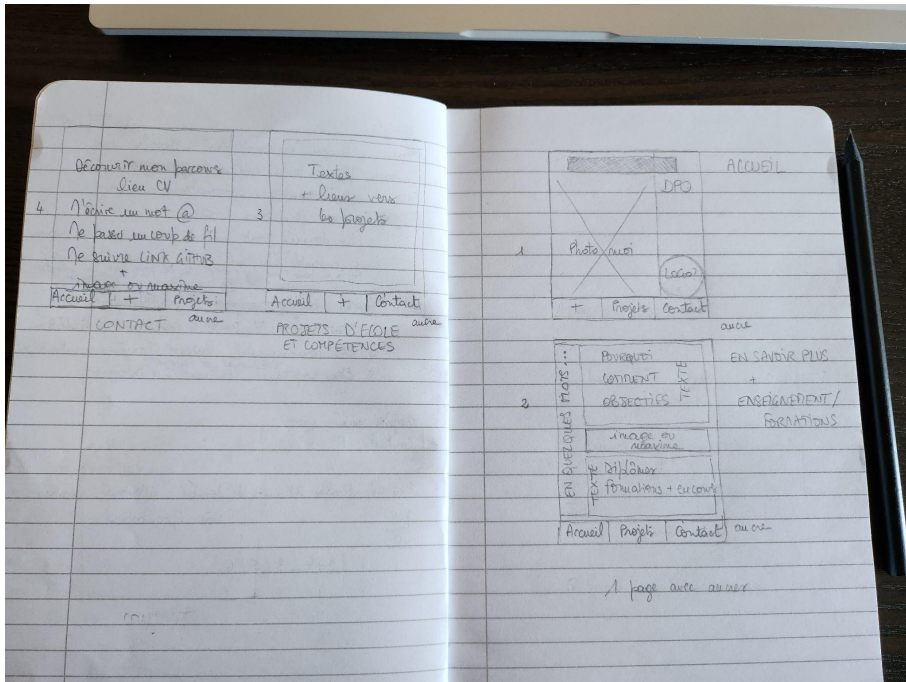 Découvrir mon parcours
lien CV
4 M'écrire un mot @
Me passer un coup de fil
Me suivre LINK GITHUB
+
image ou maxime
Accueil + Projets
ancre
CONTACT
3
Textes
+ liens vers
les projets
Accueil + Contact
ancre
PROJETS D'ECOLE
ET COMPÉTENCES
ACCUEIL
1
DPO
Photo moi
LOGO?
+ Projets Contact
ancre
2
EN QUELQUES MOTS...
POURQUOI
COMMENT
OBJECTIFS
TEXTE
image ou
maxime
TEXTE
Diplômes
formations + en cours
Accueil Projets Contact
ancre
EN SAVOIR PLUS
+
ENSEIGNEMENT/
FORMATIONS
1 page avec ancres